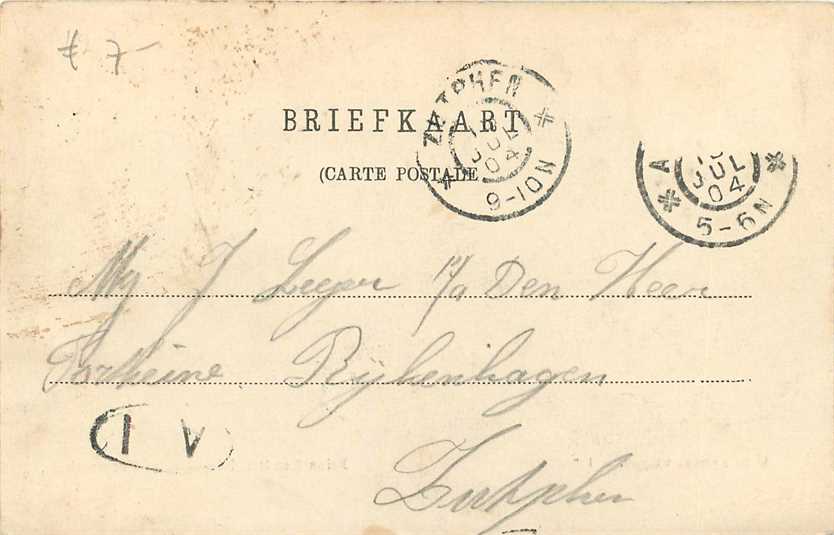 € 7-
BRIEFKAART
(CARTE POSTALE
ZUTPHEN
JUL
04
9-10N
A
JUL
04
5-6N
J Leeper p/a Den Heer
Rijkenhagen
Zutphen
A I